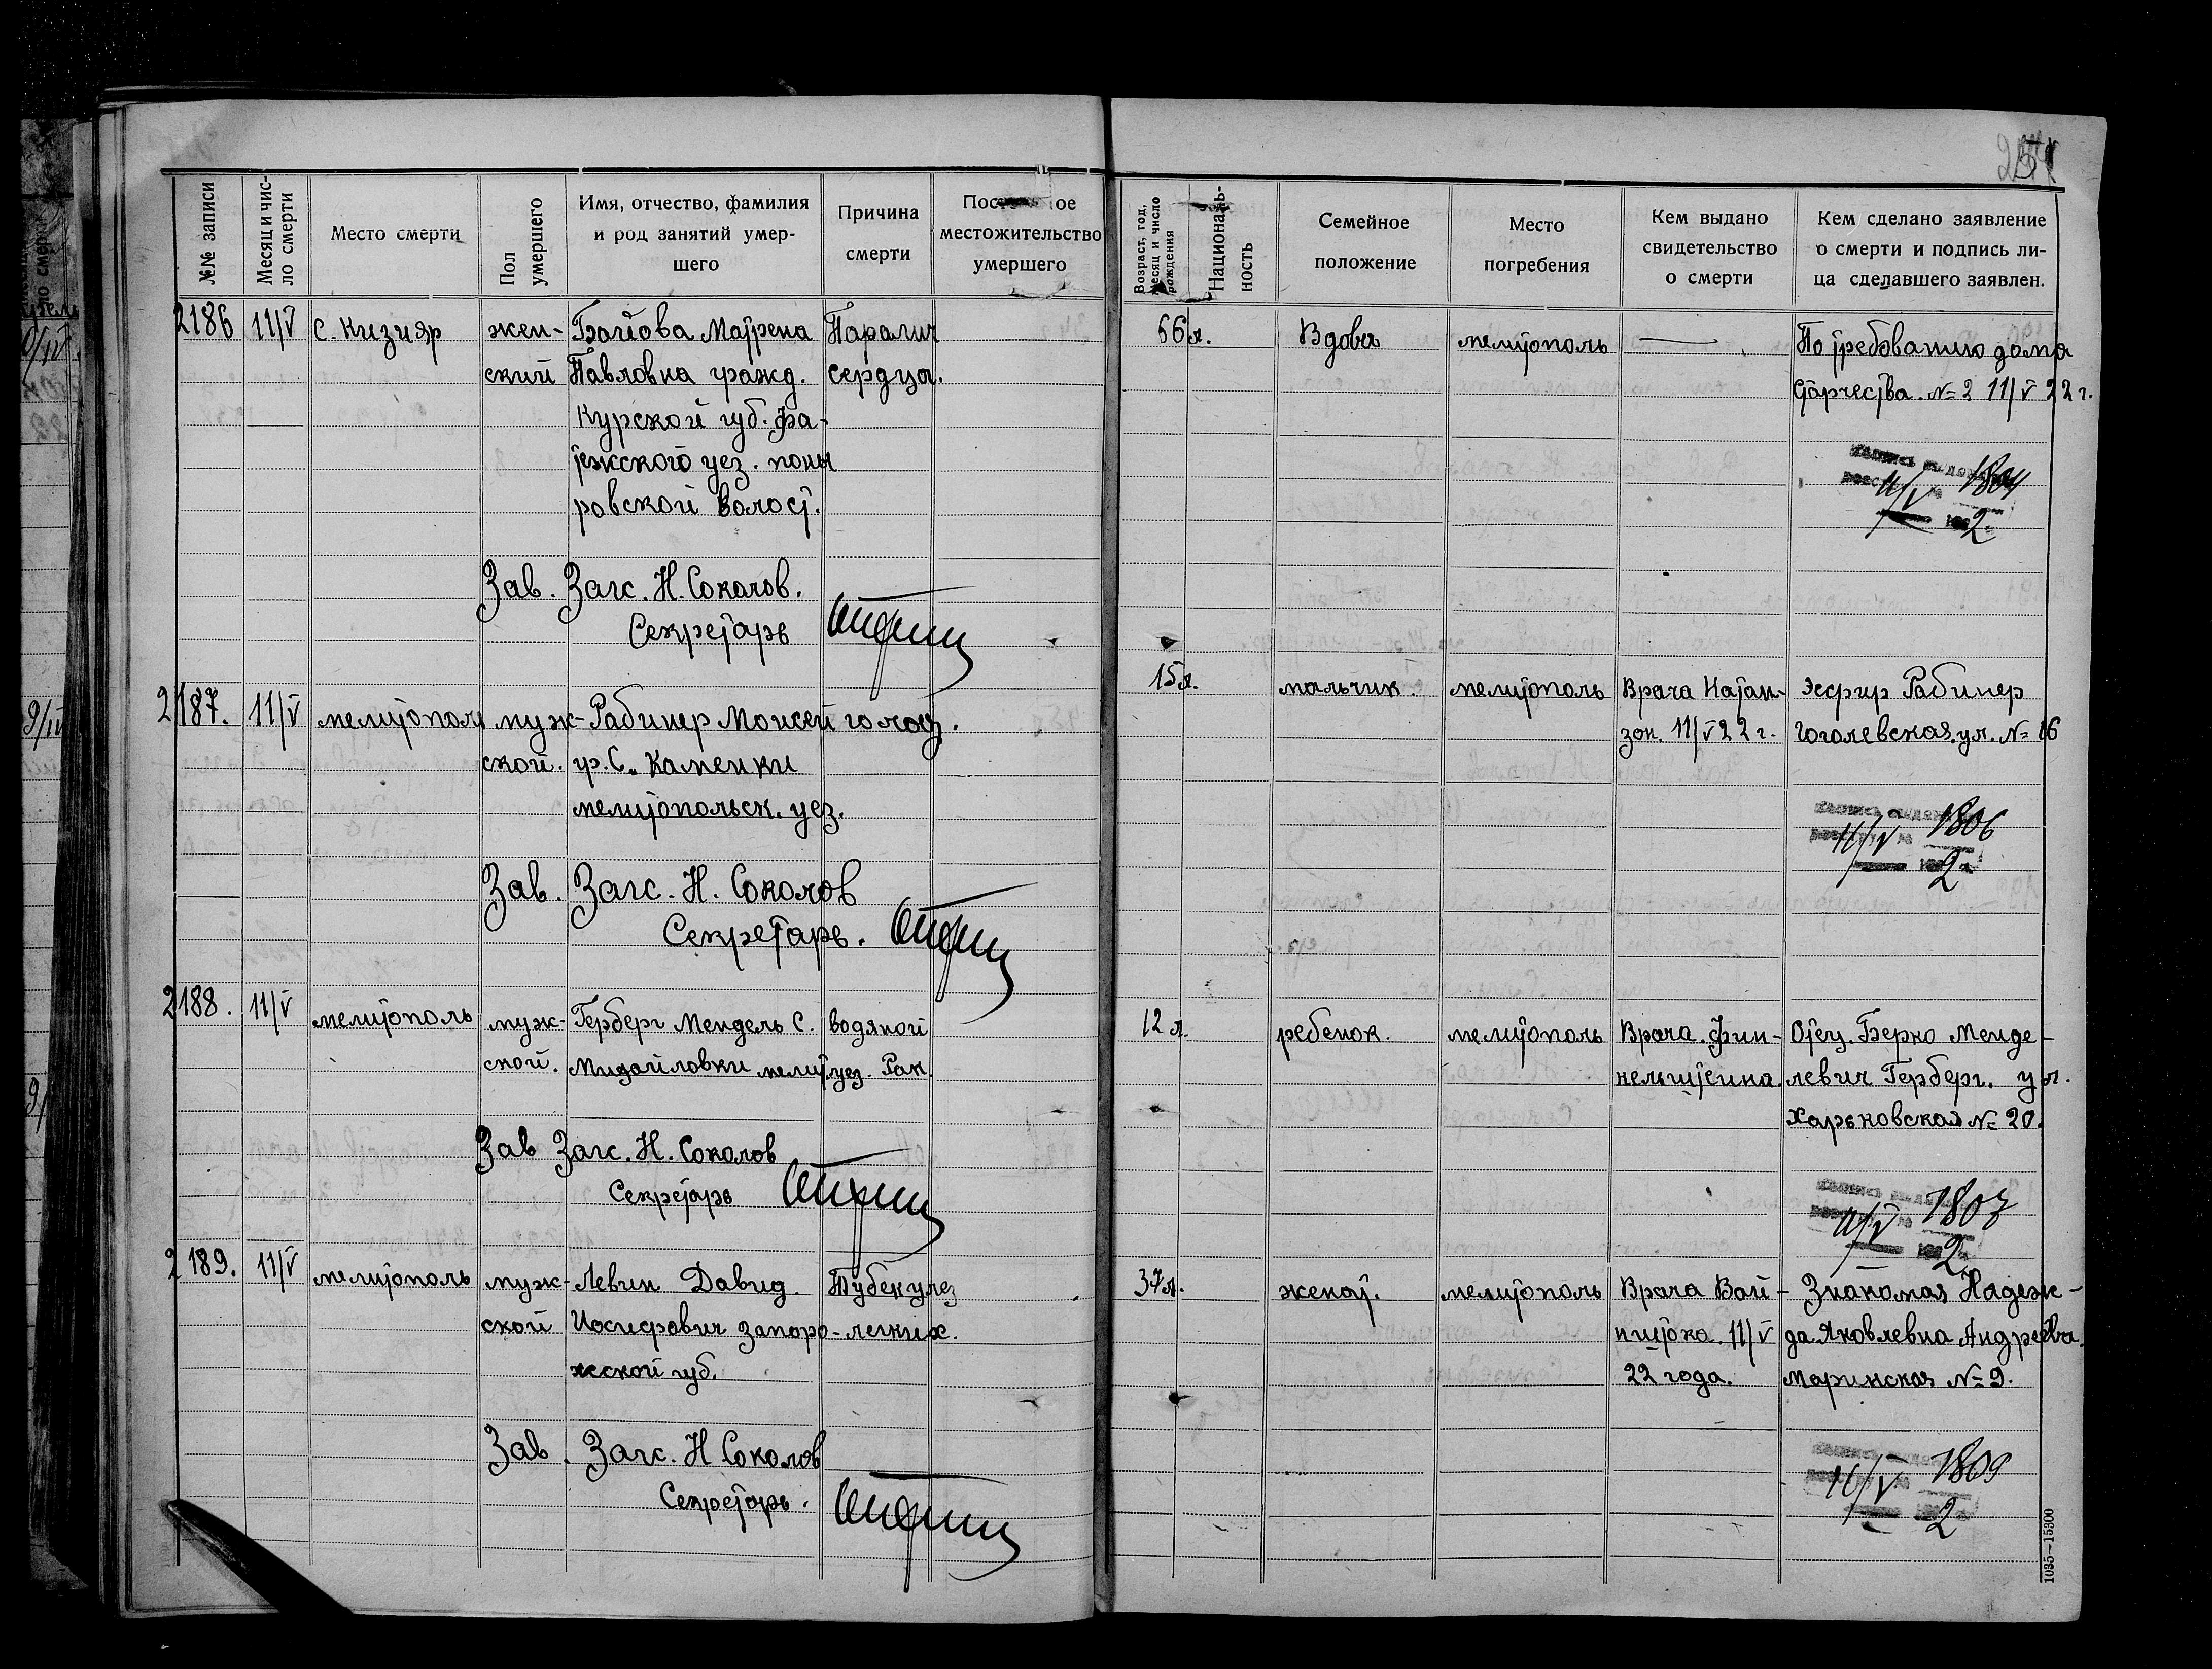 №№ записи
Месяц и чис-
ло смерти
Место смерти
Пол
умершего
Имя, отчество, фамилия
и род занятий умер-
шего
Причина
смерти
местожительство
умершего
Возраст, год,
месяц и число
рождения
Националь-
ность
Семейное
положение
Место
погребения
Кем выдано
свидетельство
о смерти
Кем сделано заявление
о смерти и подпись ли-
ца сделавшего заявлен.
2186 11/V с. Кизияр жен- Матрена Паралич 66 л. Вдова мелитополь — По требованию дома
ский Павловна гражд. сердца. Старчества. № 2 11/V 22 г.
Курской губ. Фа-
тежского уез. поны
ровской волост.
1804
11/V
2
Зав. Загс. Н. Соколов.
Секретарь
2187. 11/V мелитополь муж- Рабинер Моисей голод. 15 л. мальчик мелитополь Врача Натан- Эсфир Рабинер
ской. гр. С. Каменки зон. 11/V 22 г. Гоголевская ул. № 16
мелитопольск. уез.
1806
11/V
2
Зав. Загс. Н. Соколов
Секретарь.
2188. 11/V мелитополь муж- Герберг Мендель С. водяной 12 л. ребенок. мелитополь Врача. Фин- Отец. Берко Менде-
ской. Михайловки мелит. уез. Рак. кельштеина. левич Герберг. ул.
Харьковская № 20.
11/V
2
Зав Загс. Н. Соколов
Секретарь
2189. 11/V мелитополь муж- Левин Давид. Тубекулез 37 л. женат. мелитополь Врача Вай- Знакомая Надеж-
ской Иосифович запоро- легких. нштока. 11/V да Яковлевна Андреева.
жской губ. 22 года. Маринская № 9.
1809
11/V
2
Зав. Загс. Н Соколов
Секретарь.
1035—15300